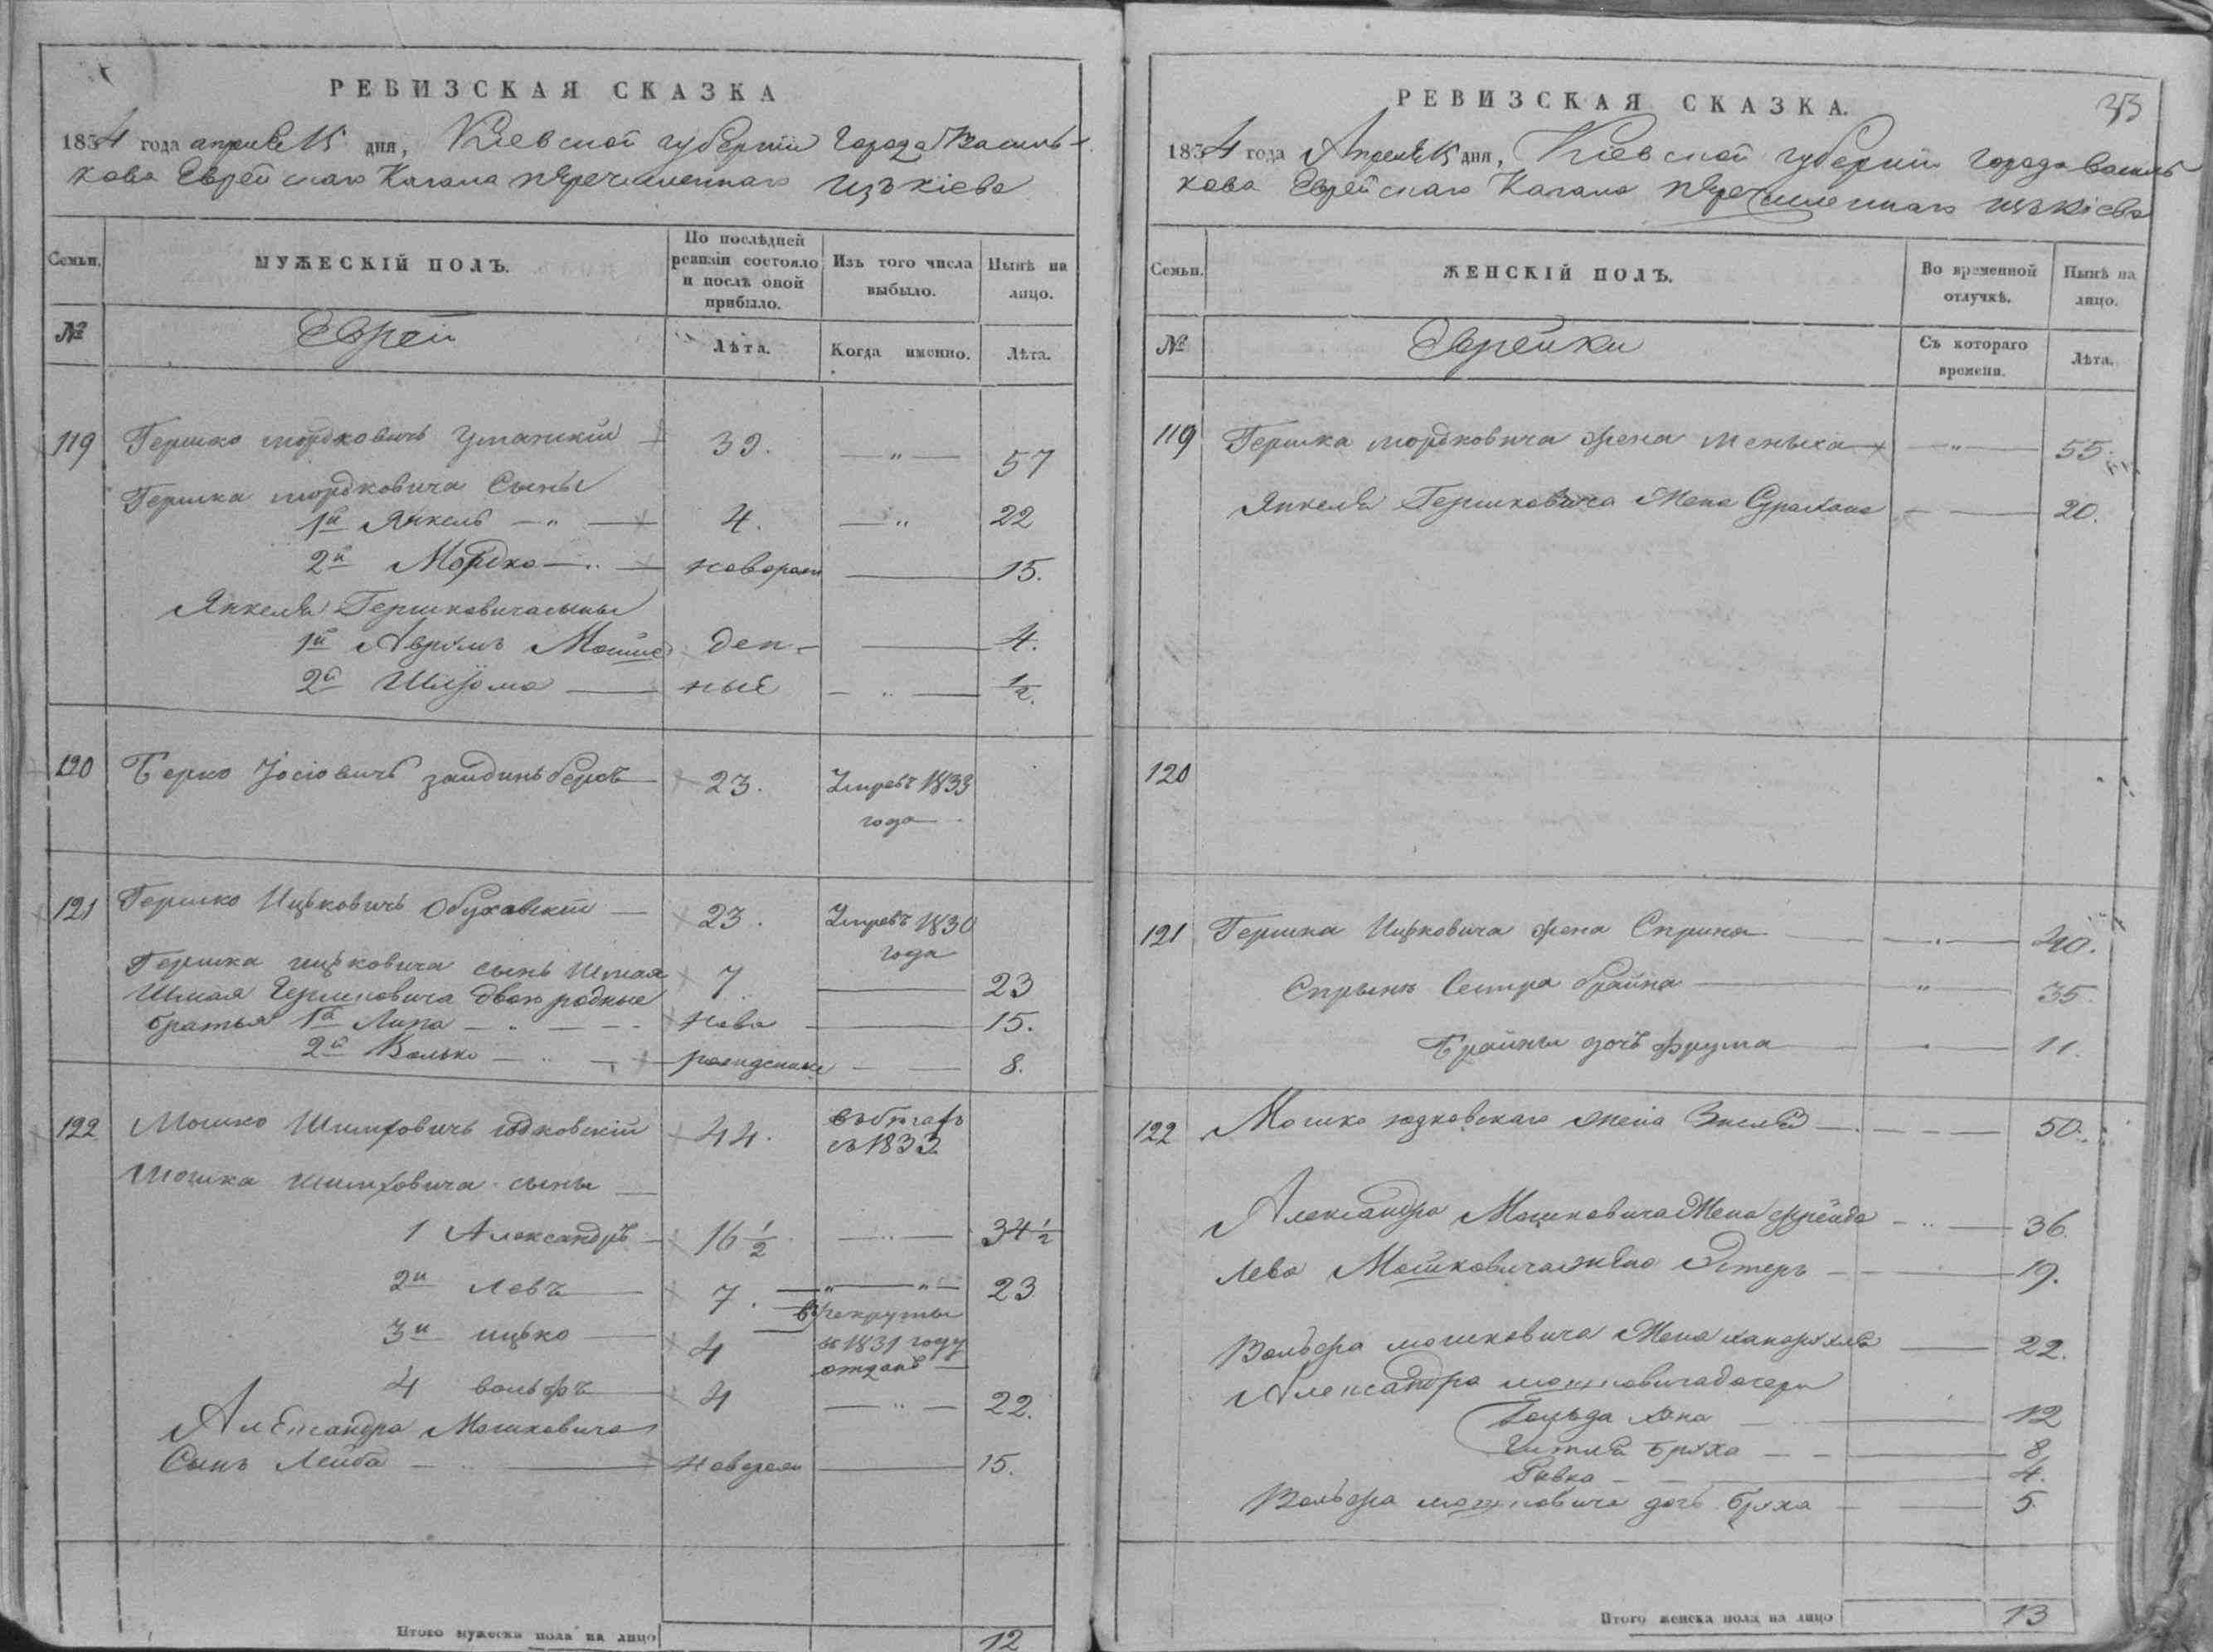 РЕВИЗСКАЯ СКАЗКА
1834 года апреля 15 дня, Кіевской губерніи города Василь-
кова Еврейскаго Кагала перечисленнаго изъ кіева
Семьи.
МУЖЕСКІЙ ПОЛЪ.
По послѣдней ревизіи состояло и послѣ оной прибыло.
Изъ того числа выбыло.
Нынѣ на лицо.
№
Евреи
Лѣта.
Когда именно.
Лѣта.
119 Гершко мордковичъ Уманскій 39. — " — 57
Гершка мордковича Сыны
1й Янкель — " — 4. — " 22
2й Мордко — " — новорож 15.
Янкеля Гершковича сыны
1й Аврумъ Мошко ден- 4.
2й Шлйома — ные — " — 1/2.
120 Берко Іосіовичъ 23. Умреъ 1833
года
121 Гершко Ицковичъ Обуховскій — 23. Умреъ 1830
года
Гершка ицковича сынъ Шмая 7 23
Шмая Гершковича двоюродные
братья 1й Липа — " — ново 15.
2й Волько — " — рожденные — — 8.
122 Мошко 44.
съ 1833
Мошка сыны —
1 Александръ — 16 1/2 — " — 34 1/2
2й Левъ — 7. " — " — 23
3й ицько — 4 в рекруты
в 1831 году
отданъ —
4 вольфъ 4 — " — 22.
Александра Мошковича
Сынъ Лейба — " — новорож 15.
Итого мужеска пола на лицо 12
РЕВИЗСКАЯ СКАЗКА.
33
1834 года Апреля 15 дня, Кіевской губерніи города Василь
кова Еврейскаго Кагала перечисленнаго изъ кіева
Семьи.
ЖЕНСКІЙ ПОЛЪ.
Во временной отлучкѣ.
Нынѣ на лицо.
№
Еврейки
Съ котораго времени.
Лѣта.
119 Гершка мордковича жена Меныха — " — 55.
Янкеля Гершковича жена — — 20.
120
121 Гершка Ицковича жена Сприна — " — 40.
Спрыны Сестра брайна — " — 35.
Брайны дочь фрума — " — 11.
122 Мошко юдковскаго жена — — — 50.
Александра Мошковича жена фрейда — " — 36.
Лева Мошковича жена Эстеръ — — 19.
Вольфа мошковича жена — 22.
Александра мошковича дочери
Гольда Хана — 12
Гитля Бруха — — 8
Ривка — — 4.
Вольфа мошковича дочь Бруха — — 5.
Итого женска пола на лицо 13